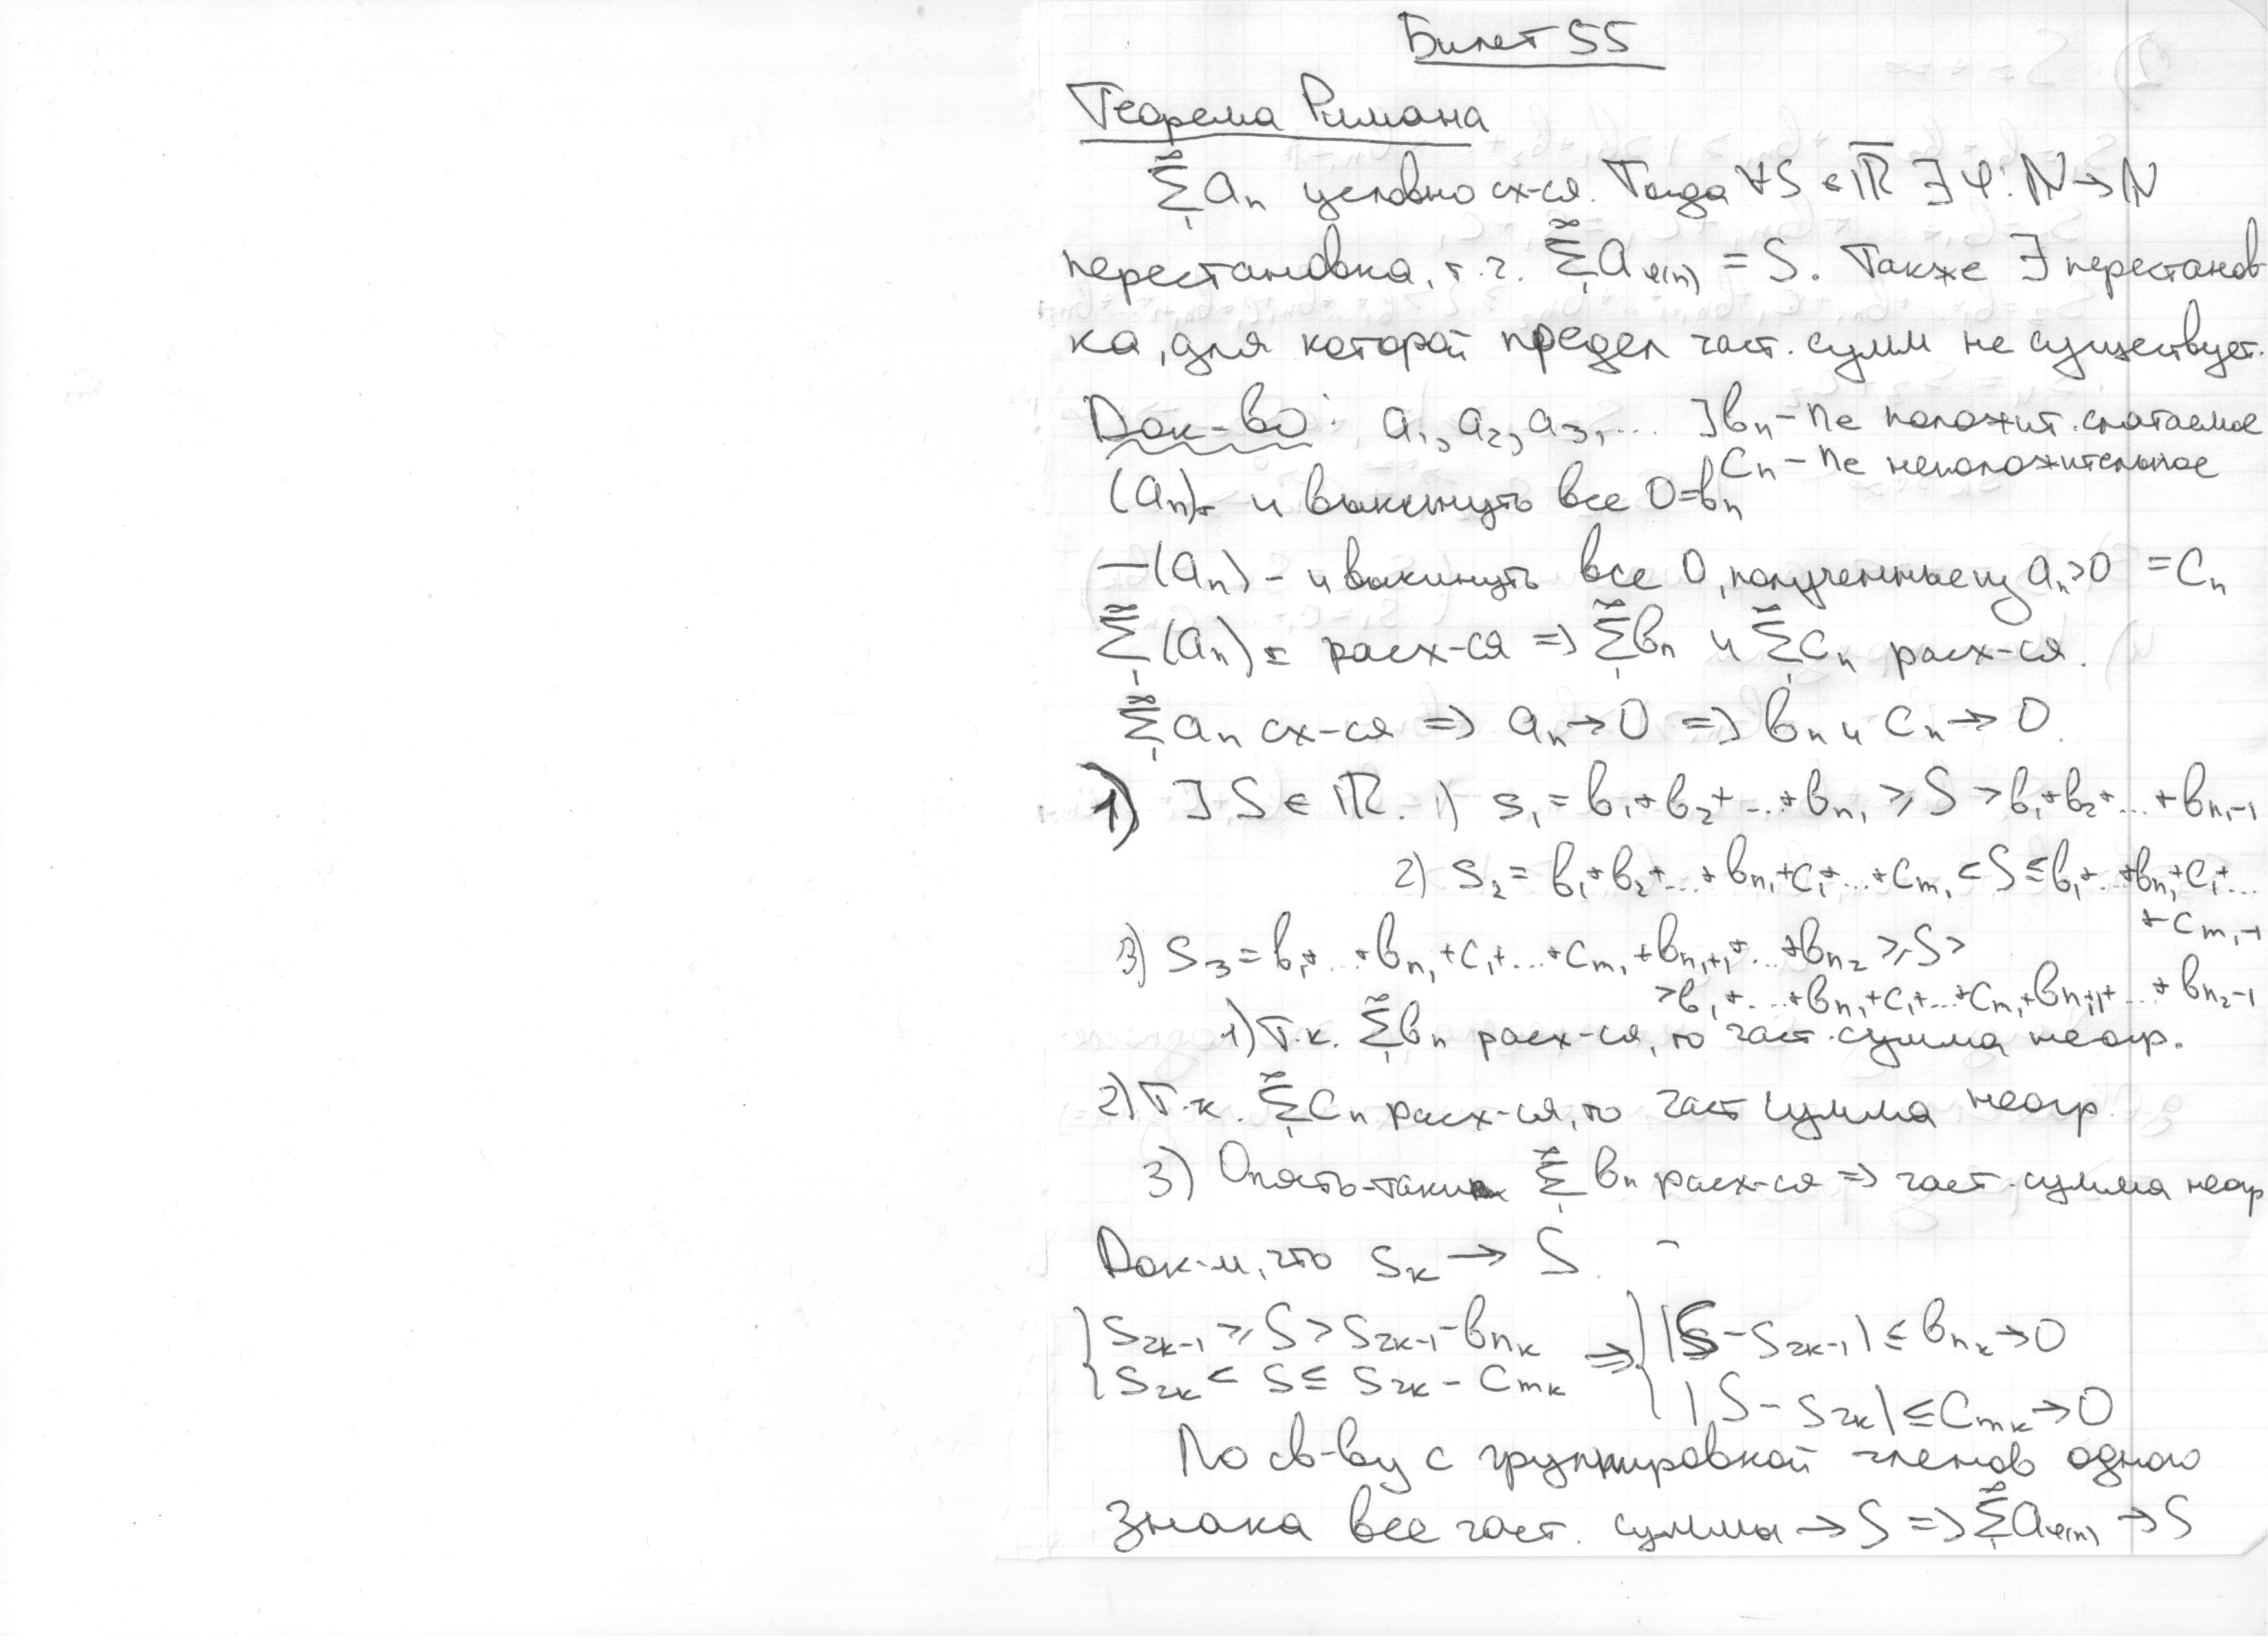 Билет 55
Теорема Римана
∞∑₁ aₙ условно сх-ся. Тогда ∀S ∈ ℝ̅ ∃ φ: ℕ → ℕ
перестановка, т.ч. ∞∑₁ a_φ(n) = S. Также ∃ перестанов-
ка, для которой предел част. сумм не существует.
Док-во: a₁, a₂, a₃, ... ] bₙ – n-е положит. слагаемое
cₙ – n-е неположительное
(aₙ)₊ и выкинуть все 0 = bₙ
–(aₙ)₋ и выкинуть все 0, полученные из aₙ>0 = cₙ
∞∑₁ (aₙ)± расх-ся => ∞∑₁ bₙ и ∞∑₁ cₙ расх-ся.
∞∑₁ aₙ сх-ся => aₙ → 0 => bₙ и cₙ → 0.
1) ] S ∈ ℝ. 1) s₁ = b₁ + b₂ + ... + b_n₁ ⩾ S > b₁ + b₂ + ... + b_n₁-1
2) s₂ = b₁ + b₂ + ... + b_n₁ + c₁ + ... + c_m₁ < S ≤ b₁ + ... + b_n₁ + c₁ + ...
+ c_m₁-1
3) s₃ = b₁ + ... + b_n₁ + c₁ + ... + c_m₁ + b_n₁+1 + ... + b_n₂ ⩾ S >
> b₁ + ... + b_n₁ + c₁ + ... + c_m₁ + b_n₁+1 + ... + b_n₂-1
1) Т.к. ∞∑₁ bₙ расх-ся, то част. сумма неогр.
2) Т.к. ∞∑₁ cₙ расх-ся, то част сумма неогр.
3) Опять-таки ∞∑₁ bₙ расх-ся => част. сумма неогр
Док-м, что s_k → S.
{ s_2k-1 ⩾ S > s_2k-1 - b_nk => { |S - s_2k-1| ≤ b_nk → 0
s_2k < S ≤ s_2k - c_mk | S - s_2k| ≤ c_mk → 0
По св-ву с группировкой членов одного
знака все част. суммы → S => ∞∑₁ a_φ(n) → S